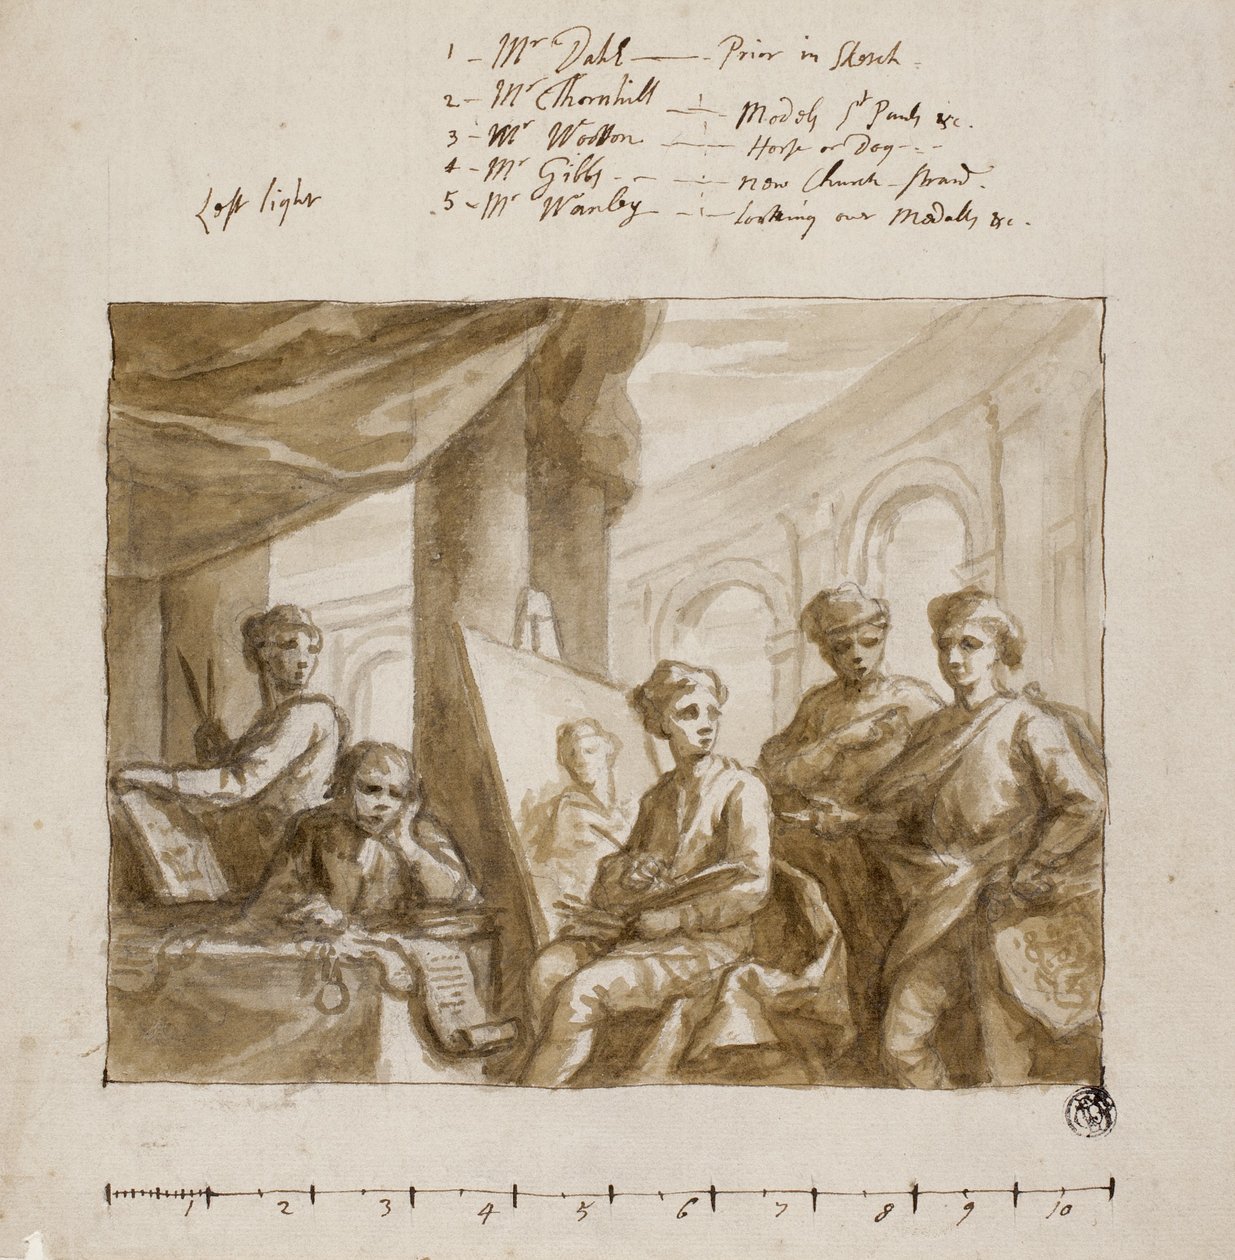 1 - Mr Dahl - Prior in Sketch
2 - Mr Thornhill - Models St Pauls &c.
3 - Mr Wotton - Horse or Dog
4 - Mr Gibbs - new Church Strand.
5 - Mr Wanley - Looking over Medalls &c.
Left light
1 2 3 4 5 6 7 8 9 10